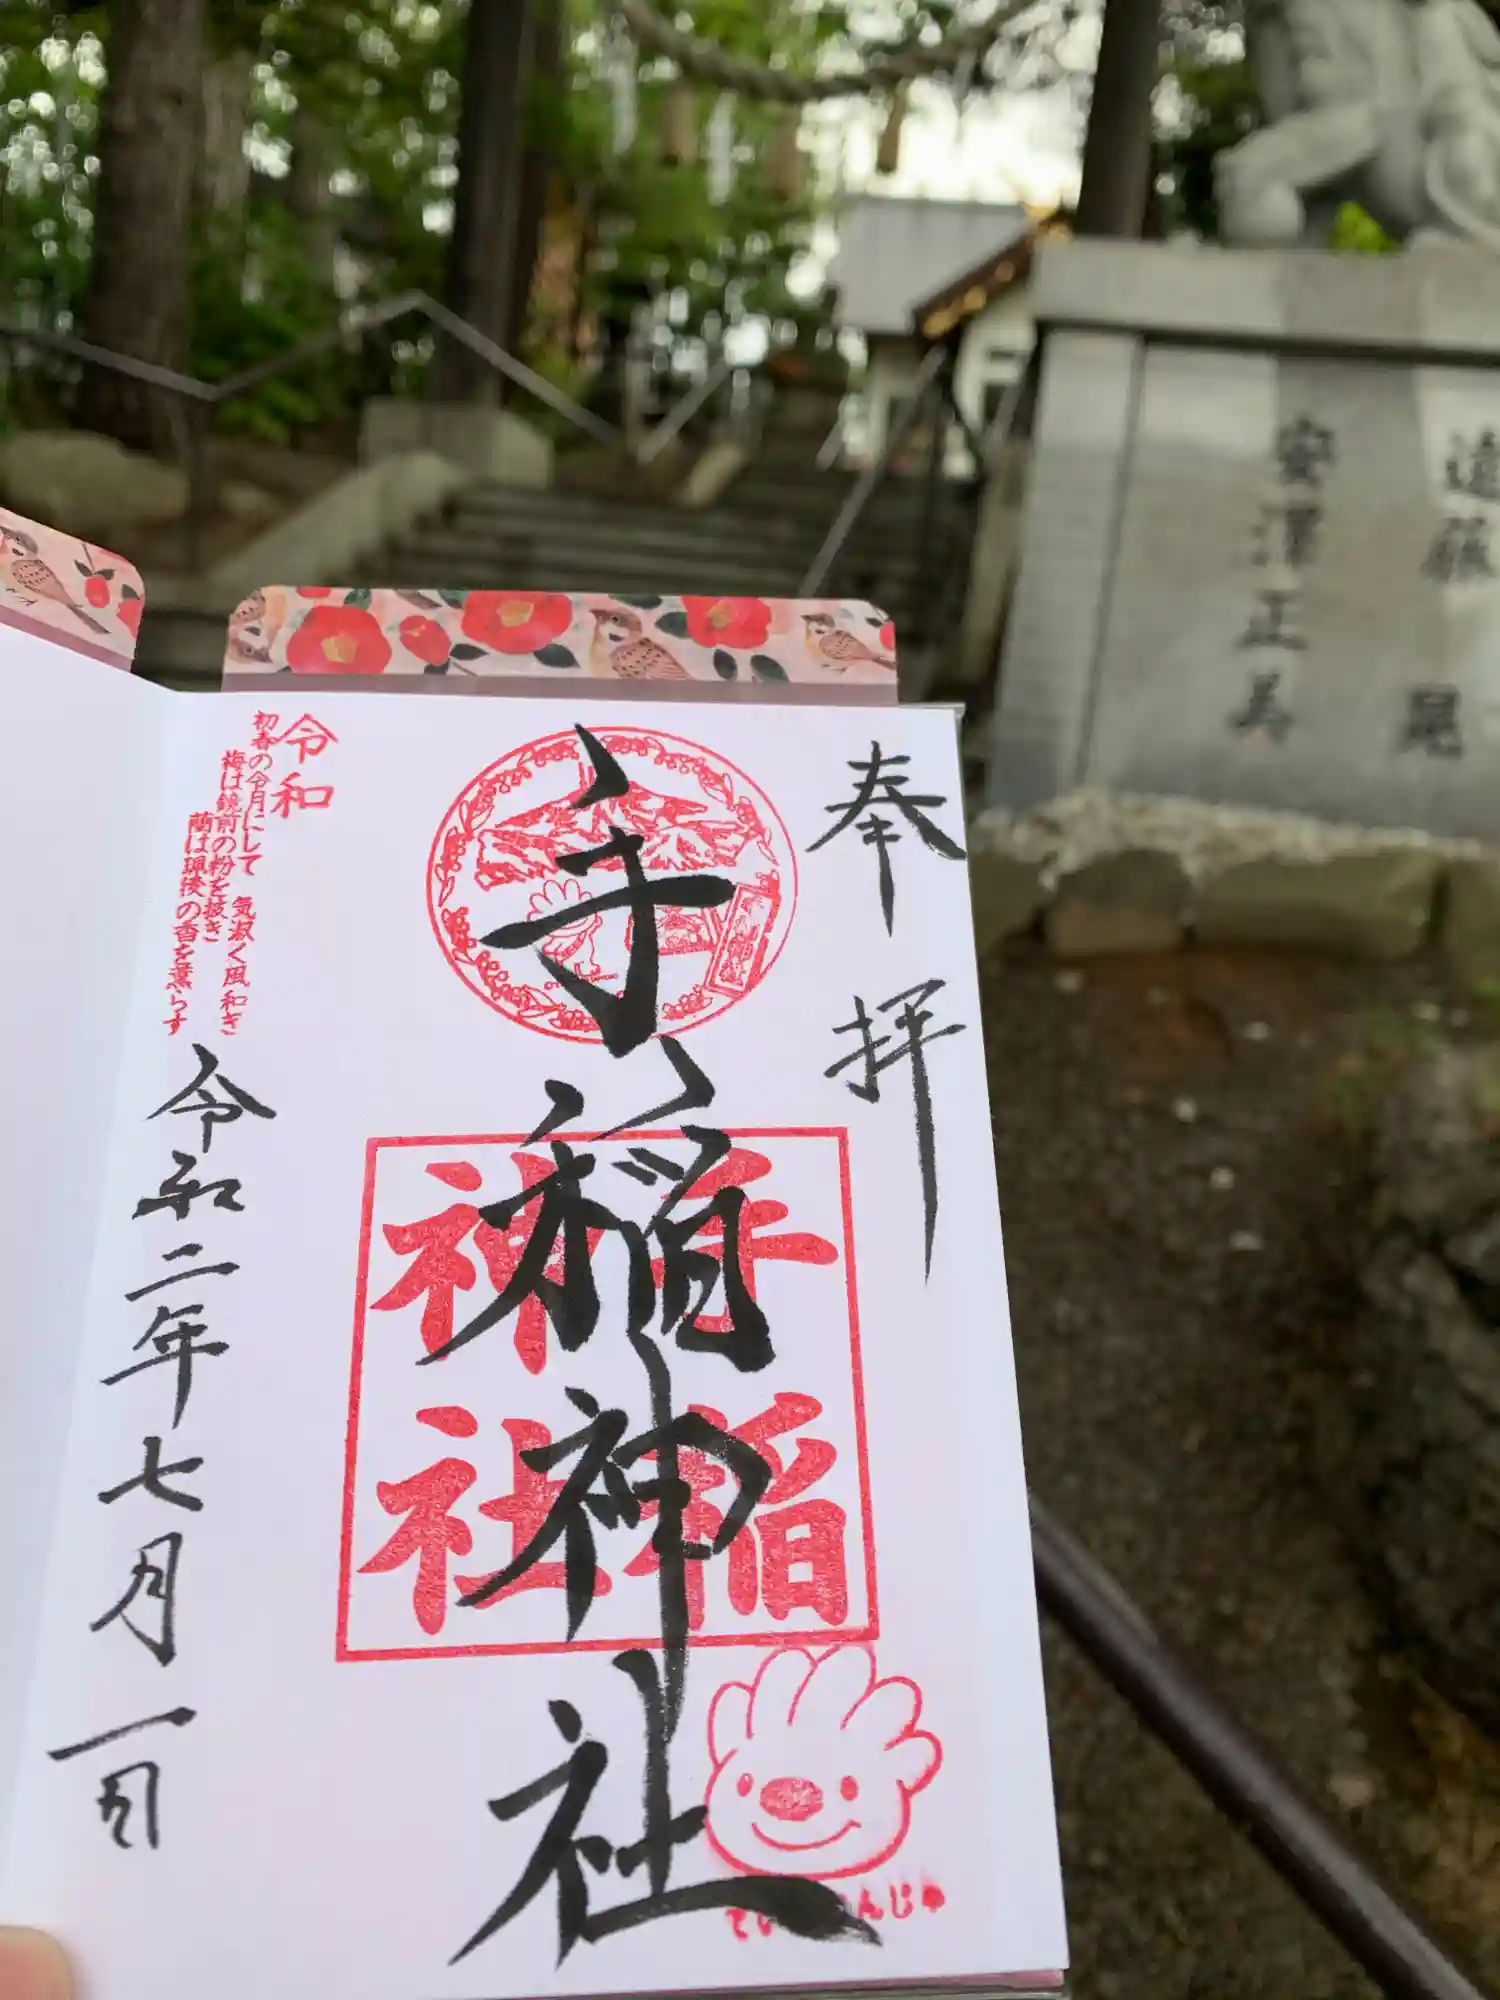 奉拝
手稲神社
手稲
神社
令和
初春の令月にして 気淑く風和ぎ
梅は鏡前の粉を披き
蘭は珮後の香を薫らす
令和二年七月一日
遠藤
安澤正美